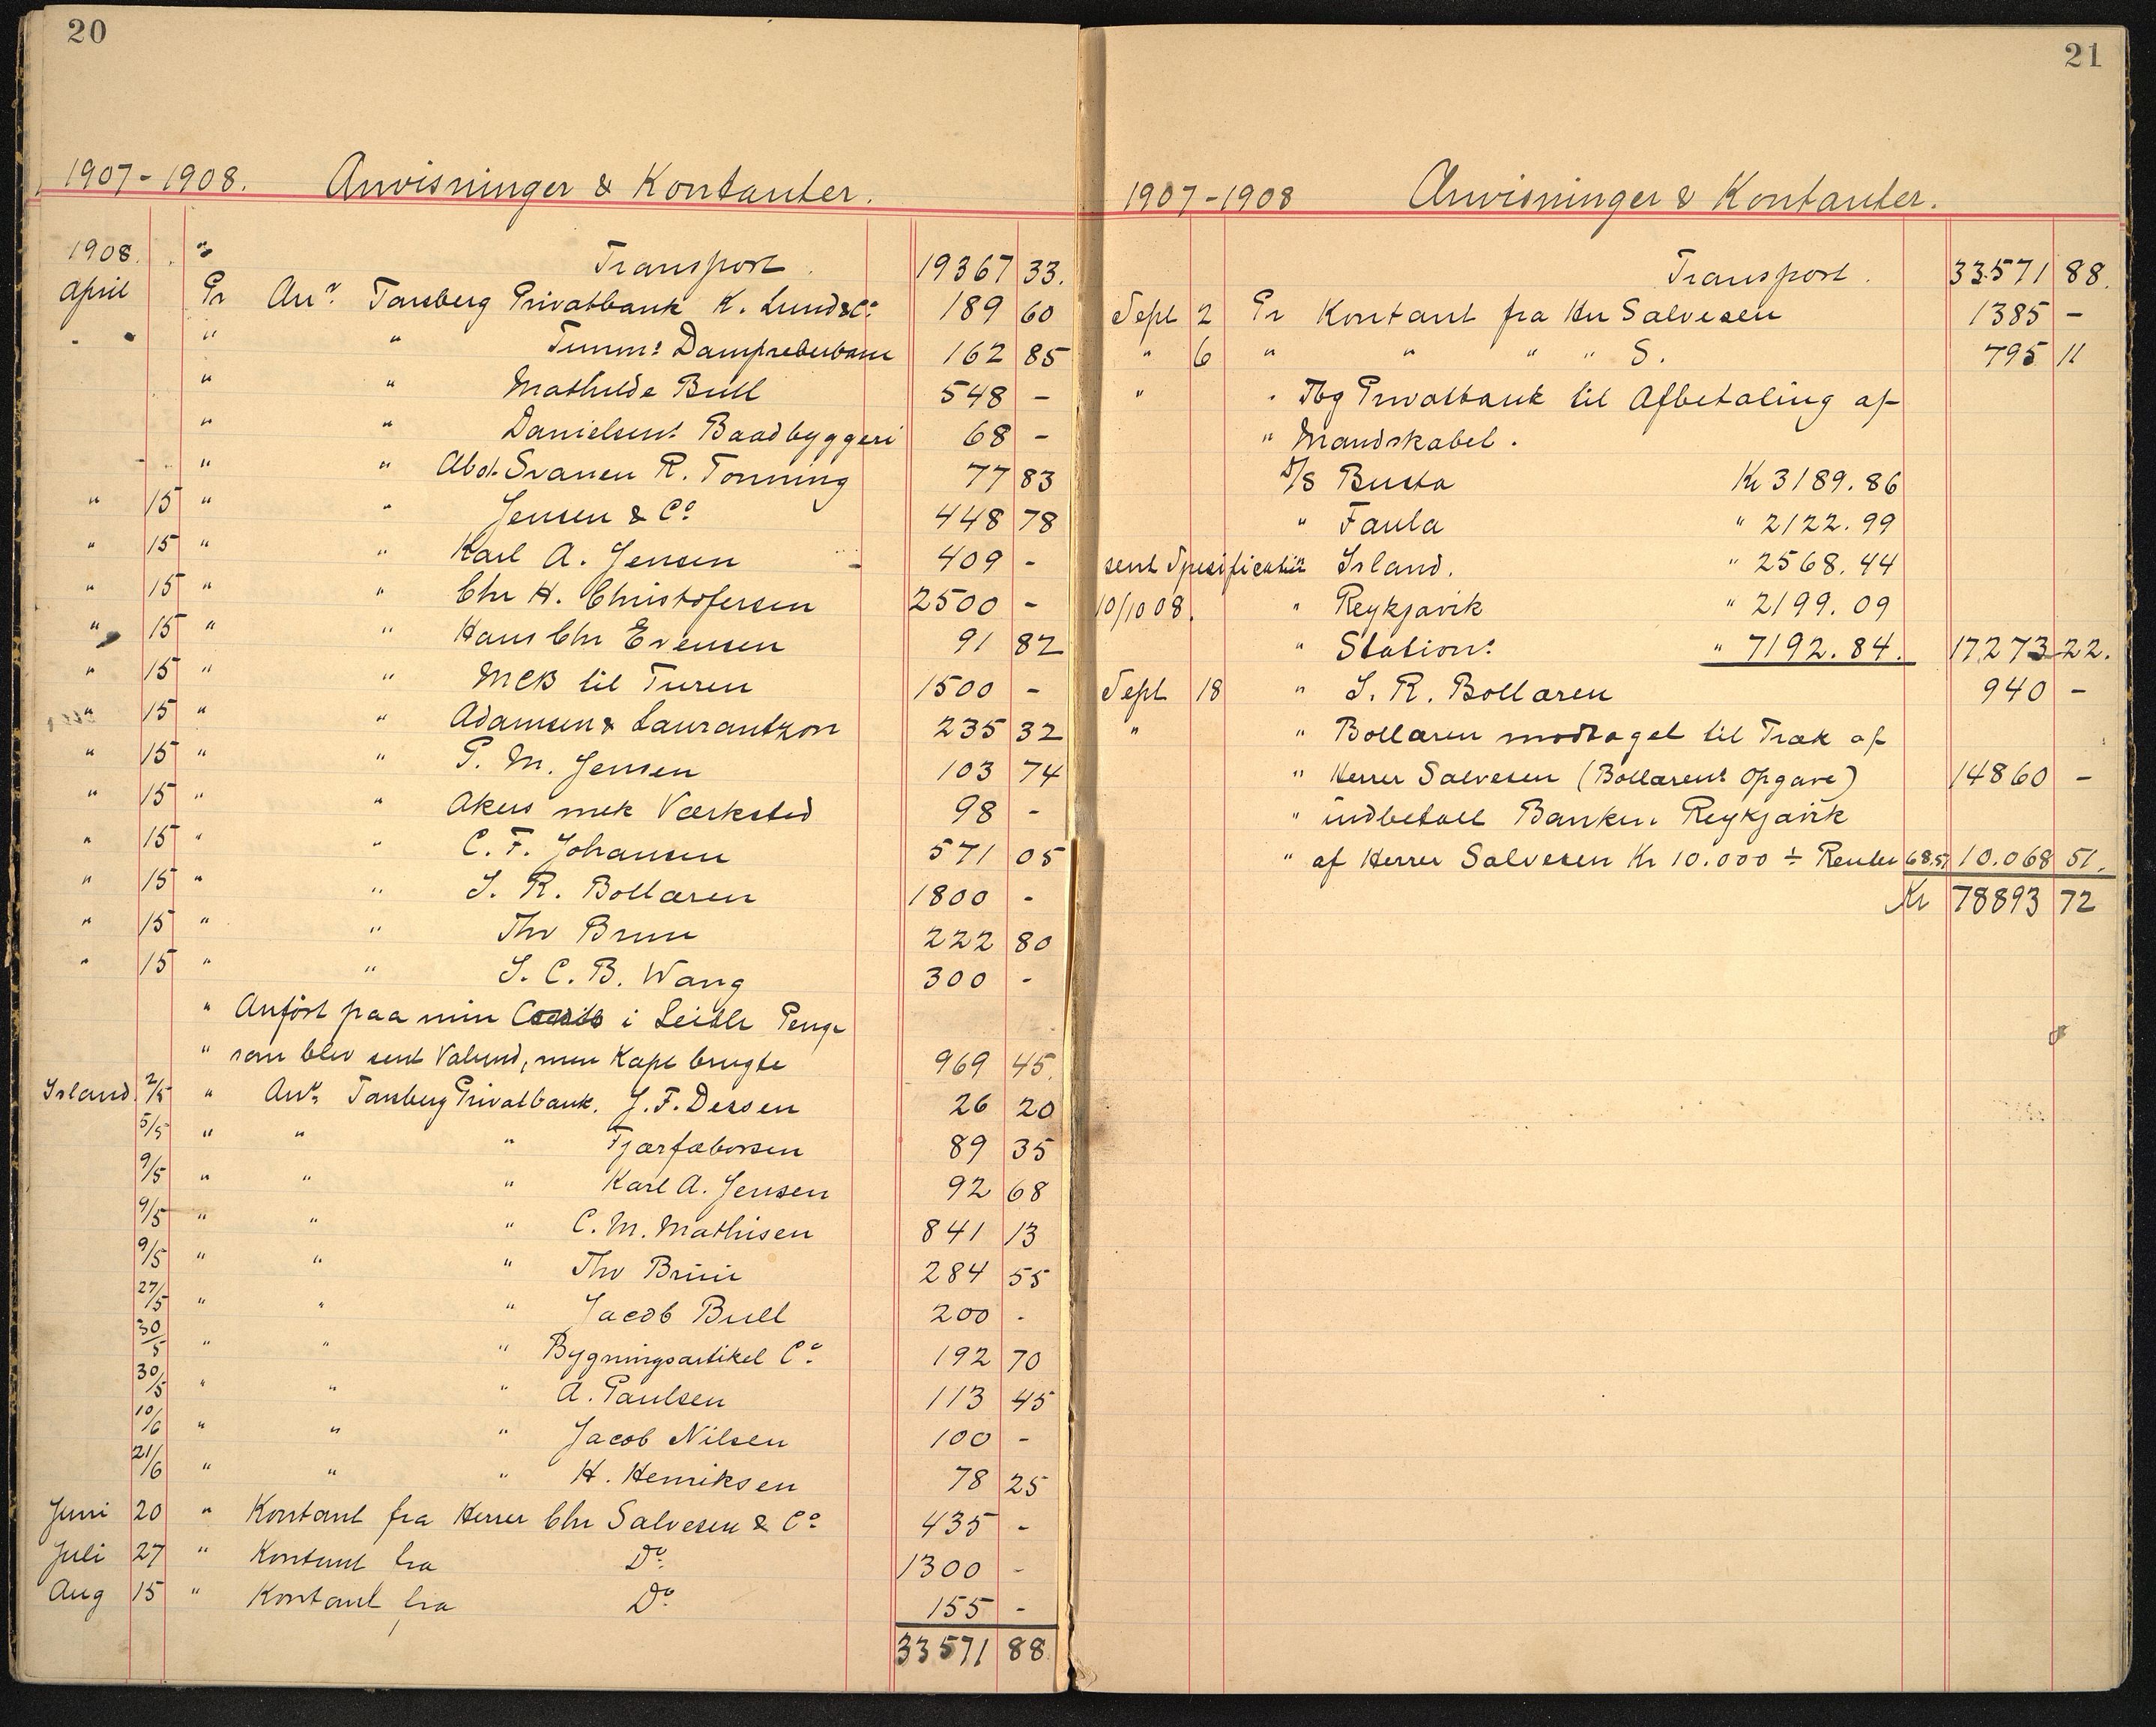 20
1907-1908. Anvisninger & Kontanter.
1908. "
Transport. 19367 33.
April Pr Anv. Tønsberg Privatbank K. Lund & Co 189 60
" " " Dampreberbane 162 85
" " Mathilde Bull 548 -
" " Danielsens Baadbyggeri 68 -
" " Svanen R. Tonning 77 83
" 15 " " Jensen & Co 448 78
" 15 " " Karl A. Jensen 409 -
" 15 " " Chr H. Christofersen 2500 -
" 15 " " Hans Chr Evensen 91 82
" 15 " " til Turen 1500 -
" 15 " " Adamsen & Laurantzon 235 32
" 15 " " P. M. Jensen 103 74
" 15 " " Akers mek Værksted 98 -
" 15 " " C. F. Johansen 571 05
" 15 " " J. R. Bottaren 1800 -
" 15 " " Thv Bruu 222 80
" 15 " " J. C. B. Wang 300 -
" Anført paa min i Leith Penge
" som blev sent Valund, men Kapt brugte 969 45.
Island 2/5 " Anv. Tønsberg Privatbank. J. F. Dessen 26 20
5/5 " " " 89 35
9/5 " " " Karl A. Jensen 92 68
9/5 " " " C. M. Mathisen 841 13
9/5 " " " Thv Bruu 284 55
27/5 " " " Jacob Bull 200 -
30/5 " " " Bygningsartikel Co 192 70
30/5 " " " A. Paulsen 113 45
10/6 " " " Jacob Nilsen 100 -
21/6 " " " H. Henriksen 78 25
Juni 20 " Kontant fra Herrer Chr Salvesen & Co 435 -
Juli 27 " Kontant fra Do 1300 -
Aug 15 " Kontant fra Do 155 -
33571 88
21
1907-1908 Anvisninger & Kontanter.
Transport. 33571 88.
Sept 2 Pr Kontant fra Hr Salvesen 1385 -
" 6 " " " " S. 795 11
" " Tbg Privatbank til Afbetaling af
" Mandskabet.
D/S Busta Kr 3189.86
" Faula " 2122.99
sent Spesification " Island. " 2568.44
10/10 08. " Reykjavik " 2199.09
" Station: " 7192.84. 17273 22.
Sept 18 " J. R. Bottaren 940 -
" " Bottaren modtaget til Træk af
" Herrer Salvesen (Bottarens Opgave) 14860 -
" indbetalt Banken Reykjavik
" af Herrer Salvesen Kr 10.000 ÷ Renter 68.51 10.068 51.
Kr 78893 72